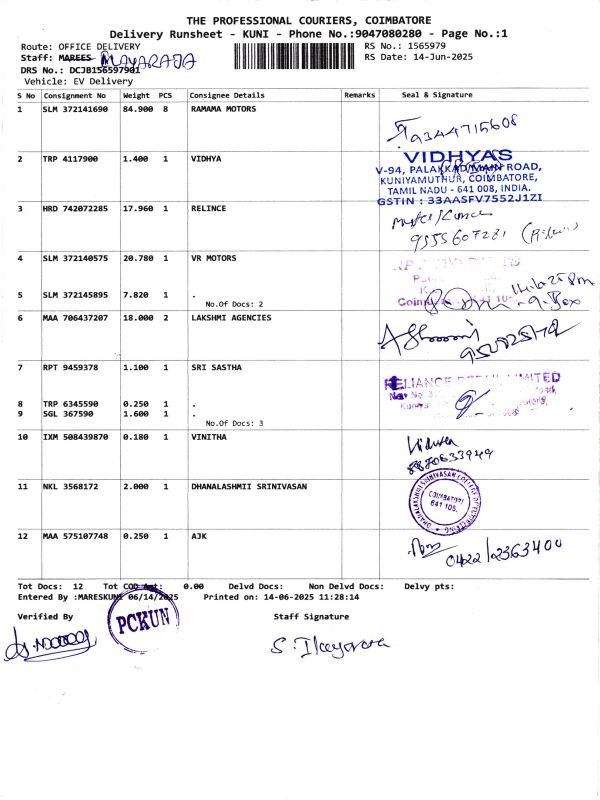 THE PROFESSIONAL COURIERS, COIMBATORE
Delivery Runsheet - KUNI - Phone No.:9047080280 - Page No.:1
Route: OFFICE DELIVERY RS No.: 1565979
Staff: MAREES MAYARAJA RS Date: 14-Jun-2025
DRS No.: DCJB156597901
Vehicle: EV Delivery
S No Consignment No Weight PCS Consignee Details Remarks Seal & Signature
1 SLM 372141690 84.900 8 RAMAMA MOTORS
9344715608
2 TRP 4117900 1.400 1 VIDHYA
VIDHYAS
V-94, PALAKKAD MAIN ROAD,
KUNIYAMUTHUR, COIMBATORE,
TAMIL NADU - 641 008, INDIA.
GSTIN : 33AASFV7552J1ZI
3 HRD 742072285 17.960 1 RELINCE
9555607281
4 SLM 372140575 20.780 1 VR MOTORS
5 SLM 372145895 7.820 1 .
No.Of Docs: 2
6 MAA 706437207 18.000 2 LAKSHMI AGENCIES
7 RPT 9459378 1.100 1 SRI SASTHA
RELIANCE LIMITED
8 TRP 6345590 0.250 1 .
9 SGL 367590 1.600 1 .
No.Of Docs: 3
10 IXM 508439870 0.180 1 VINITHA
8870633949
11 NKL 3568172 2.000 1 DHANALASHMII SRINIVASAN
COIMBATORE
641 105.
12 MAA 575107748 0.250 1 AJK
0422/2363400
Tot Docs: 12 Tot COD Amt: 0.00 Delvd Docs: Non Delvd Docs: Delvy pts:
Entered By :MARESKUNI 06/14/2025 Printed on: 14-06-2025 11:28:14
Verified By Staff Signature
PCKUN